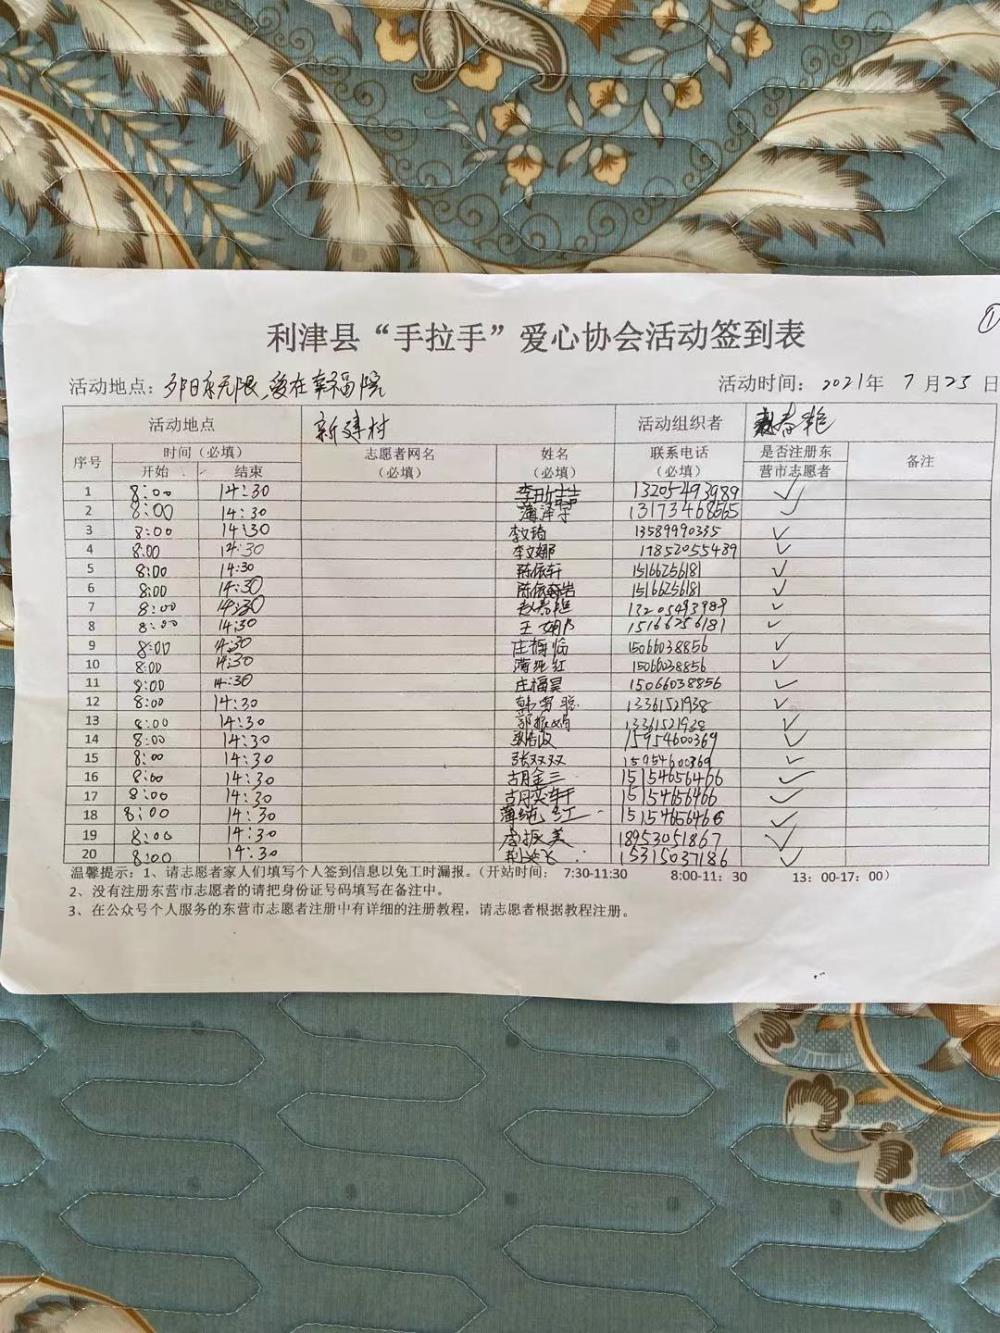 ①
利津县“手拉手”爱心协会活动签到表
活动地点：夕阳乐无限,爱在幸福院 活动时间： 2021年 7 月 25 日
活动地点 新建村 活动组织者 春艳
序号 时间（必填） 志愿者网名 姓名 联系电话 是否注册东 备注
开始 结束 （必填） （必填） （必填） 营市志愿者
1 8:00 14:30 李昕喆 13205493989 ✓
2 8:00 14:30 蒲泽宇 13173468565 ✓
3 8:00 14:30 李文琦 13589990335 ✓
4 8:00 14:30 李文娜 17852055489 ✓
5 8:00 14:30 陈依轩 15166256181 ✓
6 8:00 14:30 陈依 15166256181 ✓
7 8:00 14:30 赵春艳 13205493989 ✓
8 8:00 14:30 王娟 15166256181 ✓
9 8:00 14:30 庄 15066038856 ✓
10 8:00 14:30 蒲纯红 15066038856 ✓
11 8:00 14:30 庄福昊 15066038856 ✓
12 8:00 14:30 韩 13361521938 ✓
13 8:00 14:30 郭振娟 13361521938 ✓
14 8:00 14:30 15954600369 ✓
15 8:00 14:30 张双双 15954600369 ✓
16 8:00 14:30 胡金三 15154656466 ✓
17 8:00 14:30 胡奕轩 15154656466 ✓
18 8:00 14:30 薄纯红 15154656466 ✓
19 8:00 14:30 李振美 18953051867 ✓
20 8:00 14:30 荆 飞 15315037186 ✓
温馨提示：1、请志愿者家人们填写个人签到信息以免工时漏报。（开站时间： 7:30-11:30 8:00-11：30 13：00-17：00）
2、没有注册东营市志愿者的请把身份证号码填写在备注中。
3、在公众号个人服务的东营市志愿者注册中有详细的注册教程，请志愿者根据教程注册。